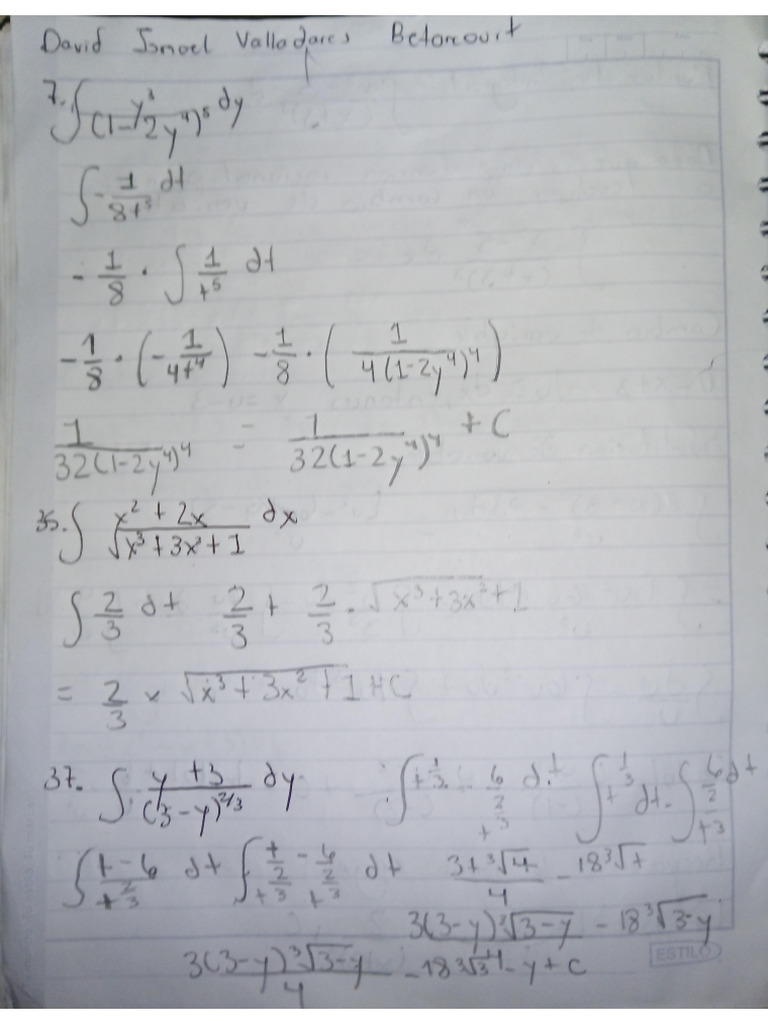 David Ismael Valladares Betancourt
7. ∫ y³/(1-2y⁴)⁵ dy
∫ -1/8t⁵ dt
-1/8 · ∫ 1/t⁵ dt
-1/8 · (-1/4t⁴) -1/8 · (1/4(1-2y⁴)⁴)
1/32(1-2y⁴)⁴ = 1/32(1-2y⁴)⁴ + C
35. ∫ x² + 2x/√x³ + 3x² + 1 dx
∫ 2/3 dt 2/3 t 2/3 · √x³ + 3x² + 1
= 2/3 × √x³ + 3x² + 1 + C
37. ∫ y + 3/(3-y)^2/3 dy ∫ t^1/3 - 6/t^2/3 dt ∫ t^1/3 dt - ∫ 6/t^2/3 dt
∫ t-6/t^2/3 dt ∫ t/t^2/3 - 6/t^2/3 dt 3t ³√t/4 - 18 ³√t
3(3-y) ³√3-y - 18 ³√3-y
3(3-y) ³√3-y/4 - 18 ³√3 - y + C
ESTILO